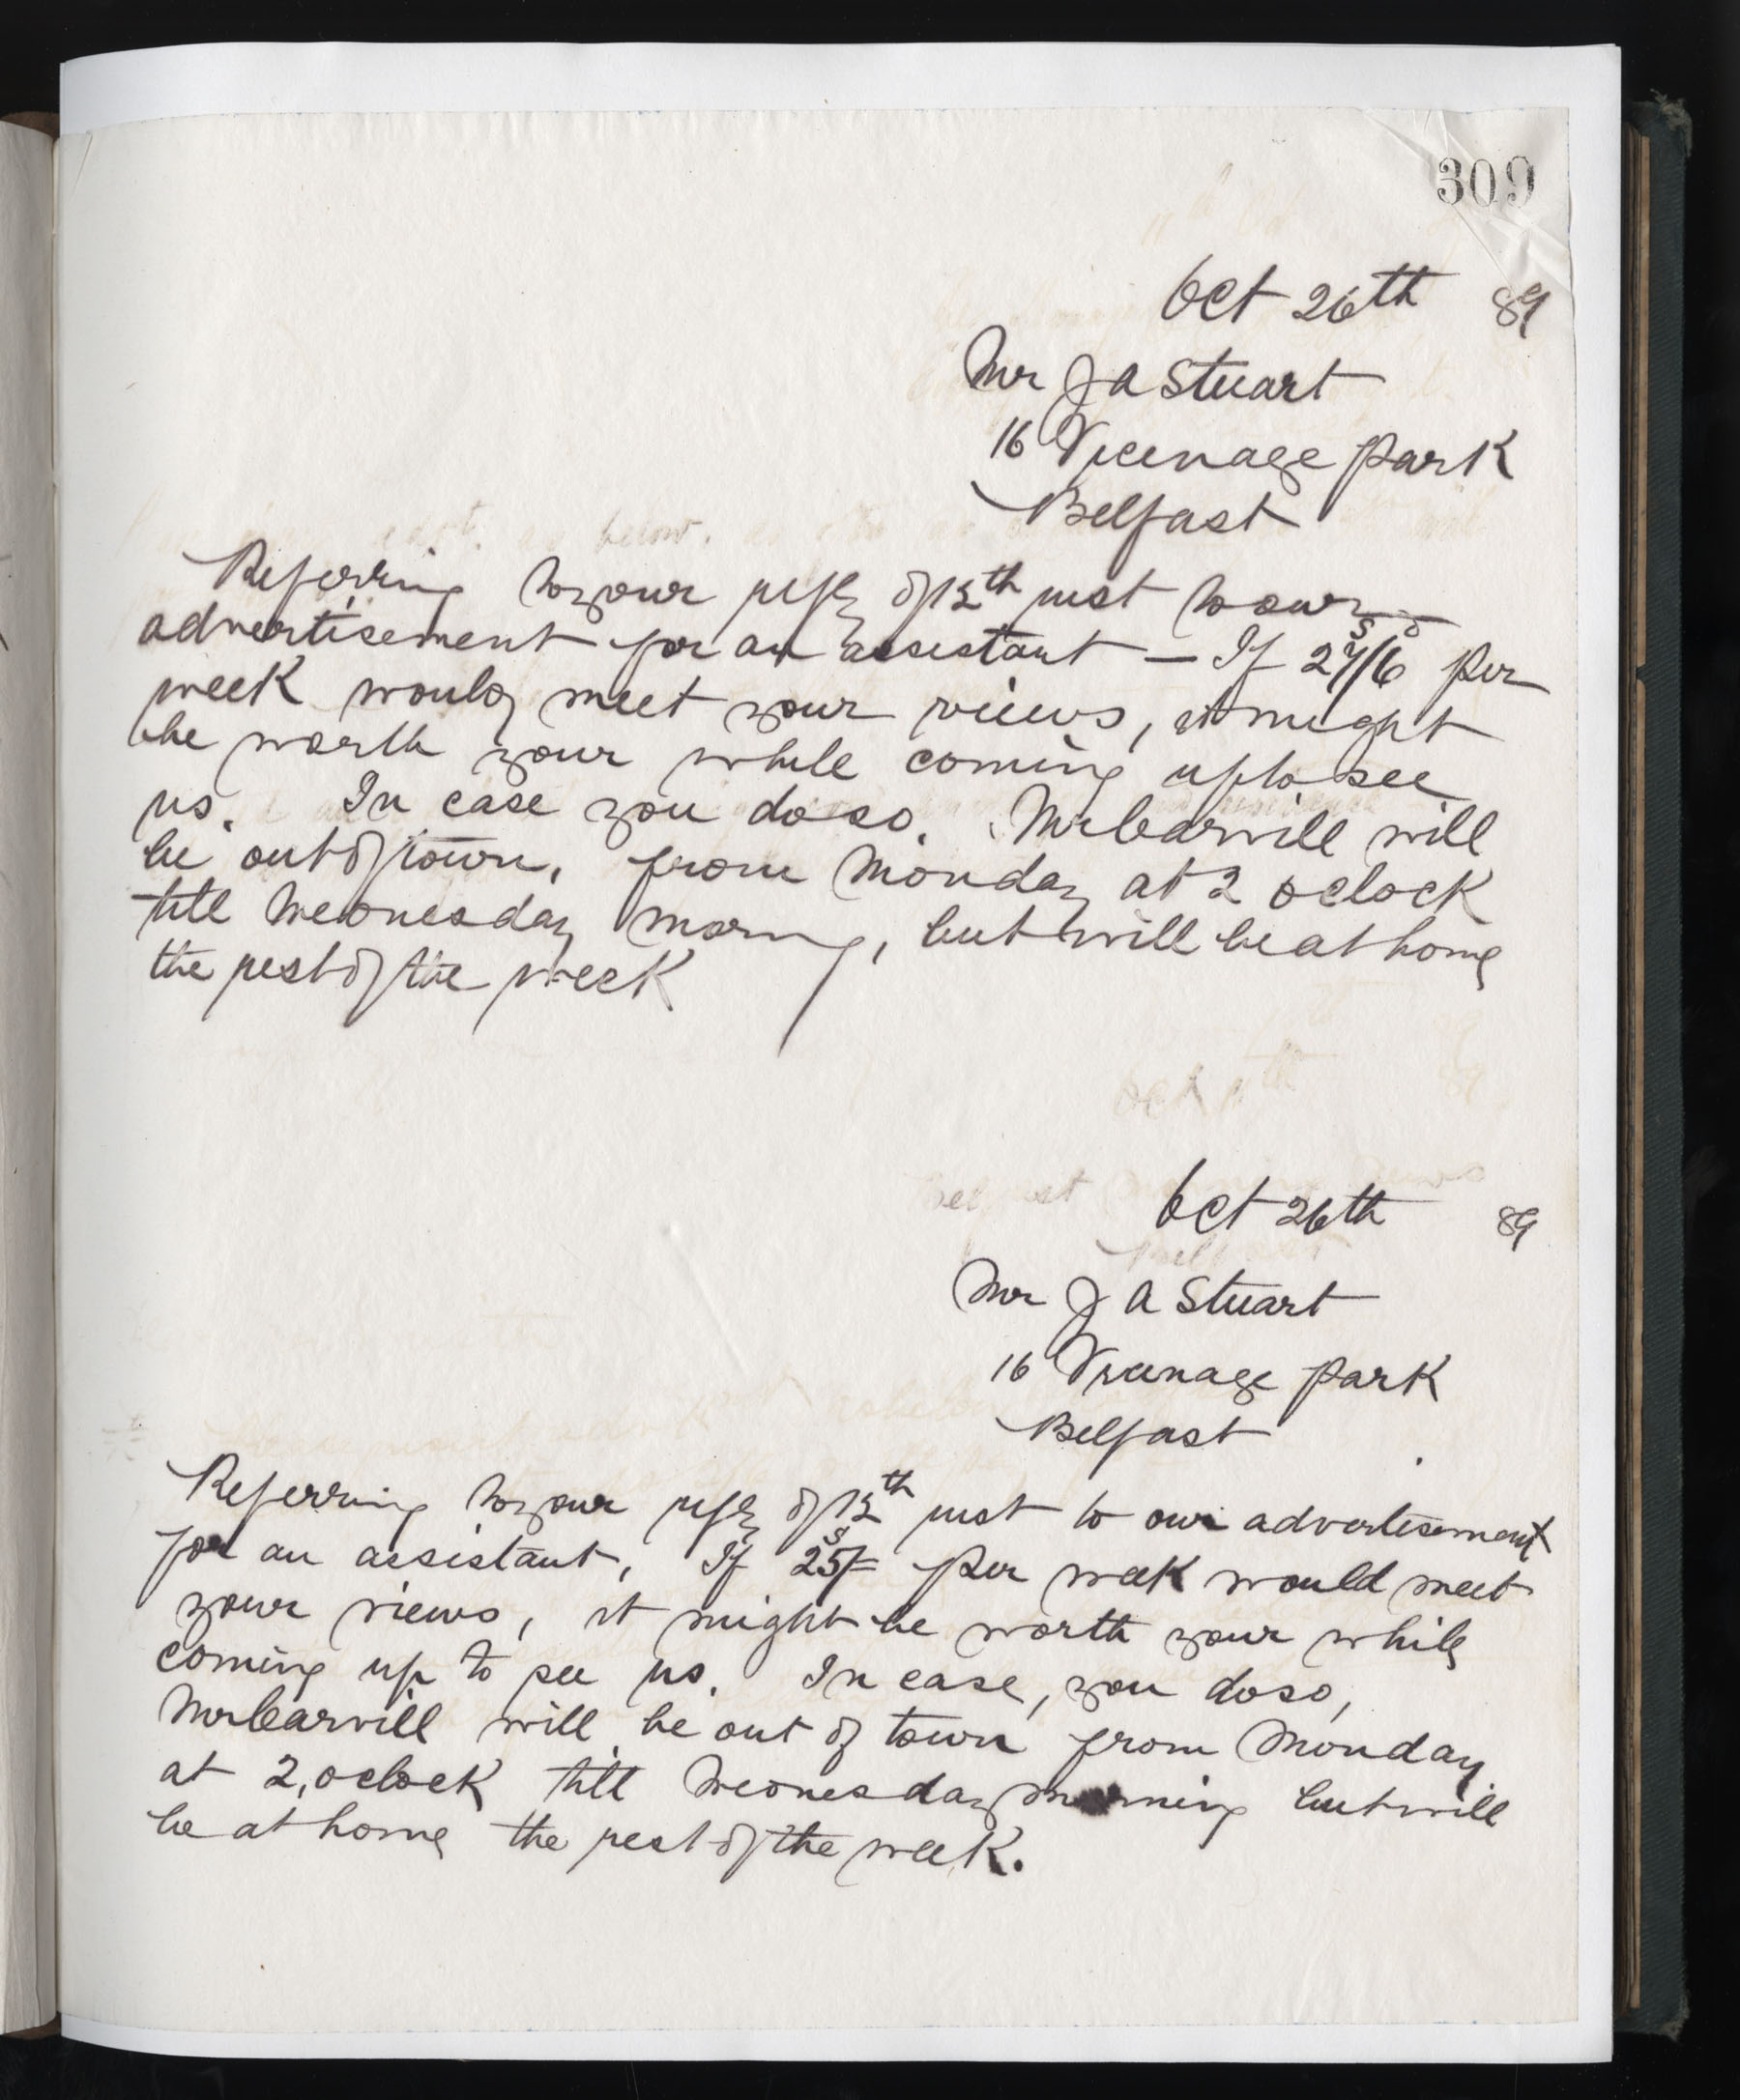 309
Oct 26th 89
Mr J A Stuart
16 Vicenage Park
Belfast
Referring to your reply of 12th inst to our
advertisement for an assistant — If 27s/6d per
week would meet your views, it might
be worth your while coming up to see
us. In case you do so. Mr Carvill will
be out of town, from Monday at 2 oclock
till Wednesday morning, but will be at home
the rest of the week
Oct 26th 89
Mr J A Stuart
16 Vicenage Park
Belfast
Referring to your reply of 12th inst to our advertisement
for an assistant, If 25s/- per week would meet
your views, it might be worth your while
coming up to see us. In case, you do so,
Mr Carvill will be out of town from Monday
at 2, oclock till Wednesday morning but will
be at home the rest of the week.